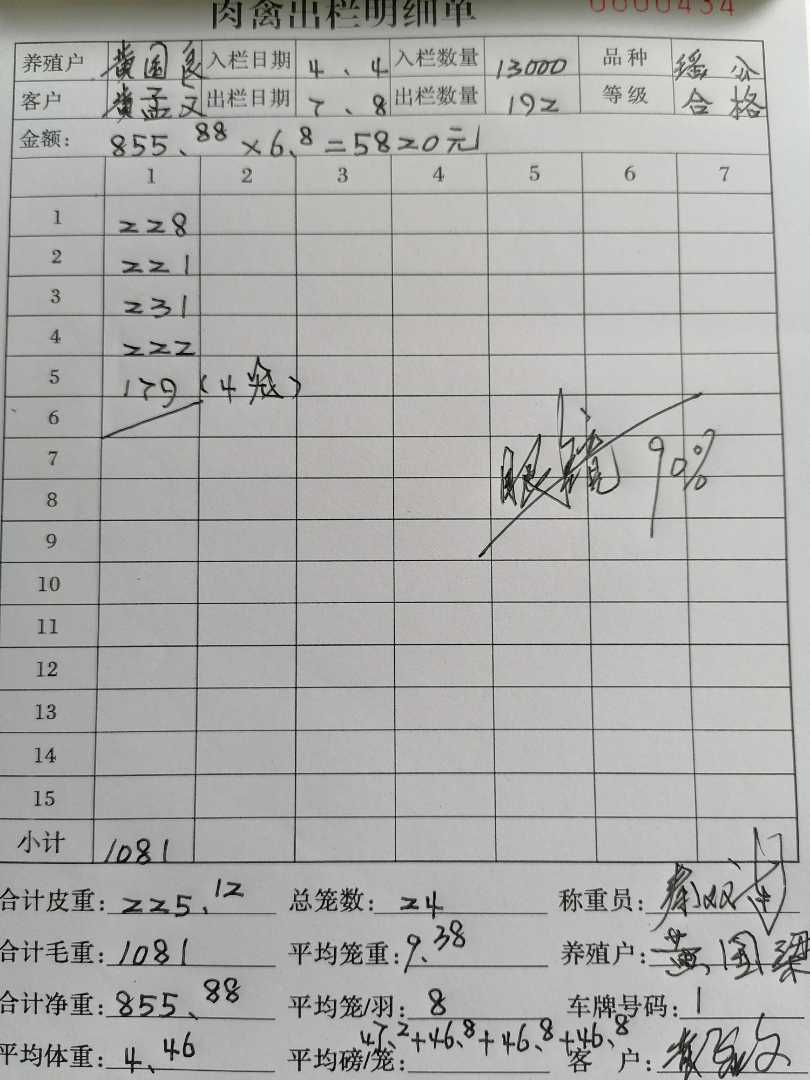 肉禽出栏明细单 0000434
养殖户 黄国良 入栏日期 4、4 入栏数量 13000 品种 瑶公
客户 黄孟文 出栏日期 7、8 出栏数量 192 等级 合格
金额: 855.88×6.8=5820元
1 2 3 4 5 6 7
1 228
2 221
3 231
4 222
5 179(4笼)
6
7 眼镜 90%
8
9
10
11
12
13
14
15
小计 1081
合计皮重: 225.12 总笼数: 24 称重员:
合计毛重: 1081 平均笼重: 9.38 养殖户: 黄国梁
合计净重: 855.88 平均笼/羽: 8 车牌号码: 1
平均体重: 4.46 平均磅/笼: 47.2+46.8+46.8+46.8 客户: